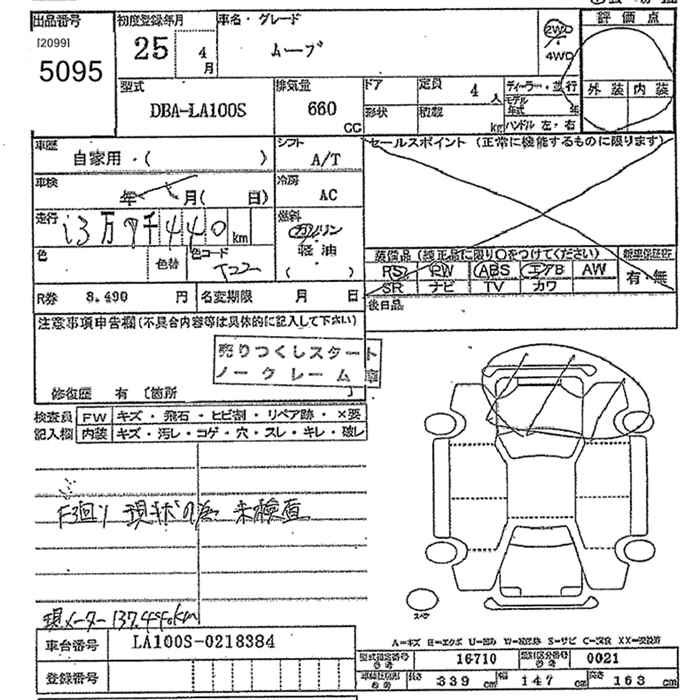 出品番号 初度登録年月 車名・グレード 評価点
[2099]
5095 25 4月 ムーブ 2WD
4WD
外装 内装
型式 排気量 ドア 定員 4人 ディーラー・並行
DBA-LA100S 660 CC 形状 積載 kg モデル年式 年
ハンドル 左・右
車歴 自家用・( ) シフト A/T セールスポイント (正常に機能するものに限ります)
車検 年 月( 日) 冷房 AC
走行 13万7千440km 燃料 ガソリン
軽油
( )
色 色替 色コード T22
装備品 (純正品に限り○をつけてください) 新車保証書
PS PW ABS エアB AW 有・無
SR ナビ TV カワ
R券 8,490 円 名変期限 月 日 後日品
注意事項申告欄(不具合内容等は具体的に記入して下さい)
売りつくしスタート
ノークレーム
修復歴 有 〔箇所 〕
検査員 FW キズ・飛石・ヒビ割・リペア跡・×要
記入欄 内装 キズ・汚レ・コゲ・穴・スレ・キレ・破レ
F3回り 現状の為 未検査
現メーター 137,440km
スペア
車台番号 LA100S-0218384
登録番号
型式指定番号 16710 類別区分番号 0021
長さ 339 cm 幅 147 cm 高さ 163 cm